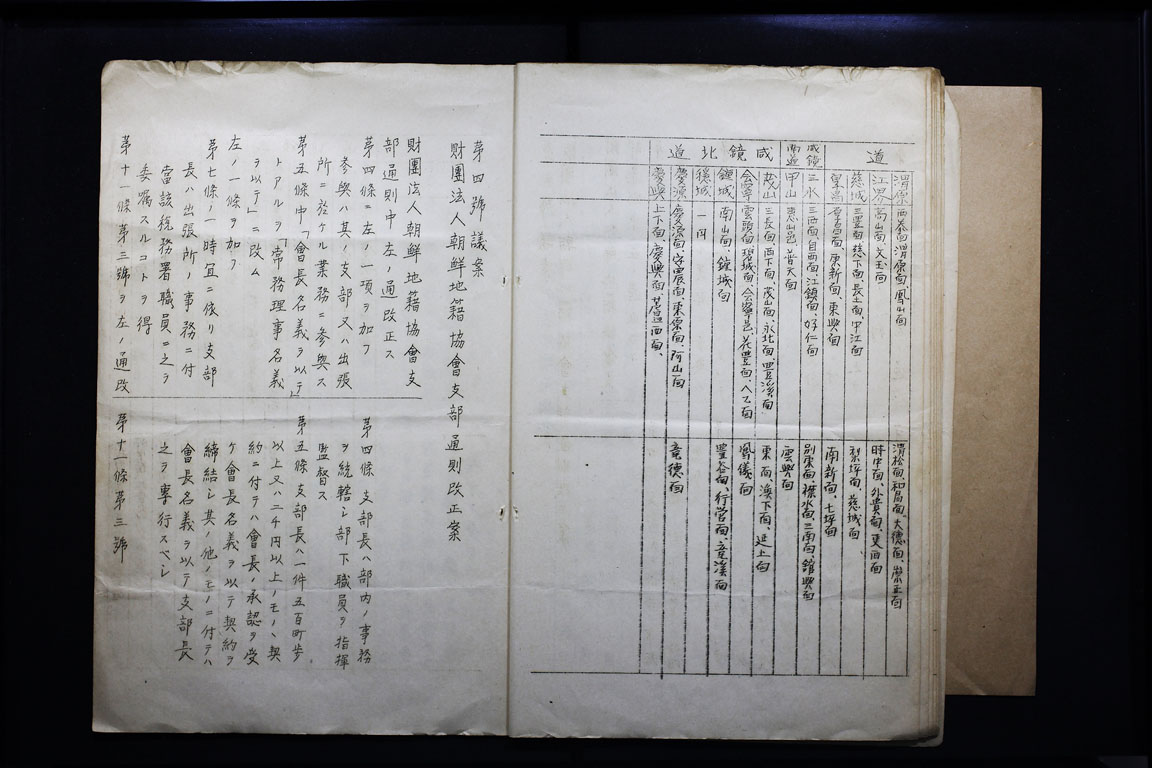 道
渭原
西泰面、渭原面、鳳山面
渭松面、和昌面、大德面、崇正面
江界
高山面、文玉面
時中面、外貴面、吏西面
慈城
三豊面、慈下面、長土面、中江面
梨坪面、慈城面
厚昌
厚昌面、東新面、東興面
南新面、七坪面
咸鏡南道
三水
三西面、自西面、江鎮面、好仁面
別東面、襟水面、三南面、館興面
甲山
惠山邑、普天面
雲興面
咸鏡北道
茂山
三長面、西下面、茂山面、永北面、豊溪面
東面、漁下面、延上面
會寧
雲頭面、碧城面、会寧邑、花豊面、八乙面
鳳儀面
鍾城
南山面、鍾城面
豊谷面、行営面、章溪面
穏城
一円
慶源
慶源面、安農面、東原面、阿山面
竜德面
慶興
上下面、慶興面、芦西面、
第四號議案
財團法人朝鮮地籍協會支部通則改正案
財團法人朝鮮地籍協會支
部通則中左ノ通改正ス
第四條ニ左ノ一項ヲ加フ
參與ハ其ノ支部又ハ出張
所ニ於ケル業務ニ參與ス
第五條中「會長名義ヲ以テ」
トアルヲ「常務理事名義
ヲ以テ」ニ改ム
左ノ一條ヲ加フ
第七條ノ一 時宜ニ依リ支部
長ハ出張所ノ事務ニ付
當該税務署職員ニ之ヲ
委嘱スルコトヲ得
第十一條第三號ヲ左ノ通改
第四條 支部長ハ部内ノ事務
ヲ統轄シ部下職員ヲ指揮
監督ス
第五條 支部長ハ一件五百町歩
以上又ハ二千円以上ノモノヽ契
約ニ付テハ會長ノ承認ヲ受
ケ會長名義ヲ以テ契約ヲ
締結シ其ノ他ノモノニ付テハ
會長名義ヲ以テ支部長
之ヲ專行スベシ
第十一條第三號